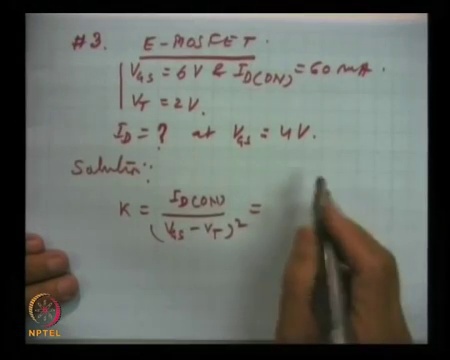 #3. E-MOSFET.
V_GS = 6 V & I_D(ON) = 60 mA.
V_T = 2 V.
I_D = ? at V_GS = 4 V.
Solution:
K = I_D(ON) / (V_GS - V_T)^2 =
NPTEL